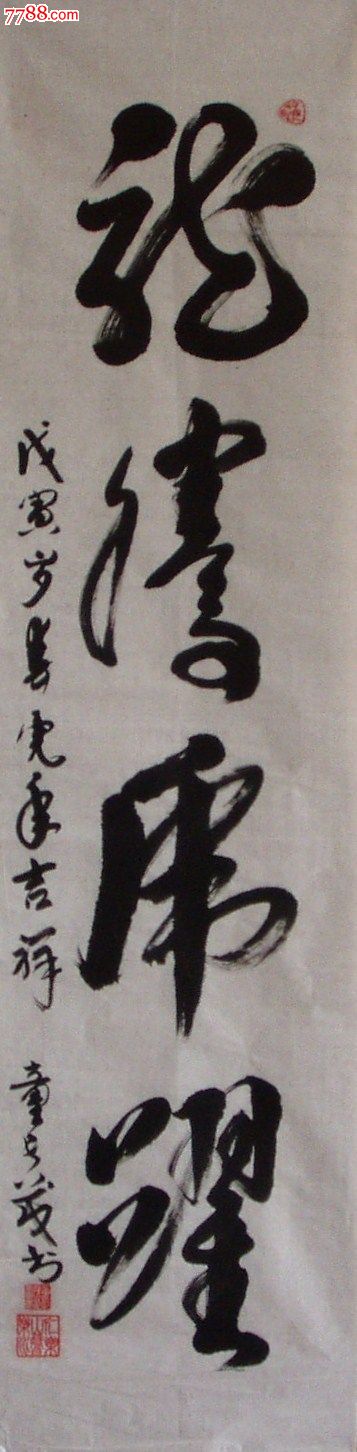 7788.com
龙腾虎跃
戊寅岁春虎年吉祥
童
书